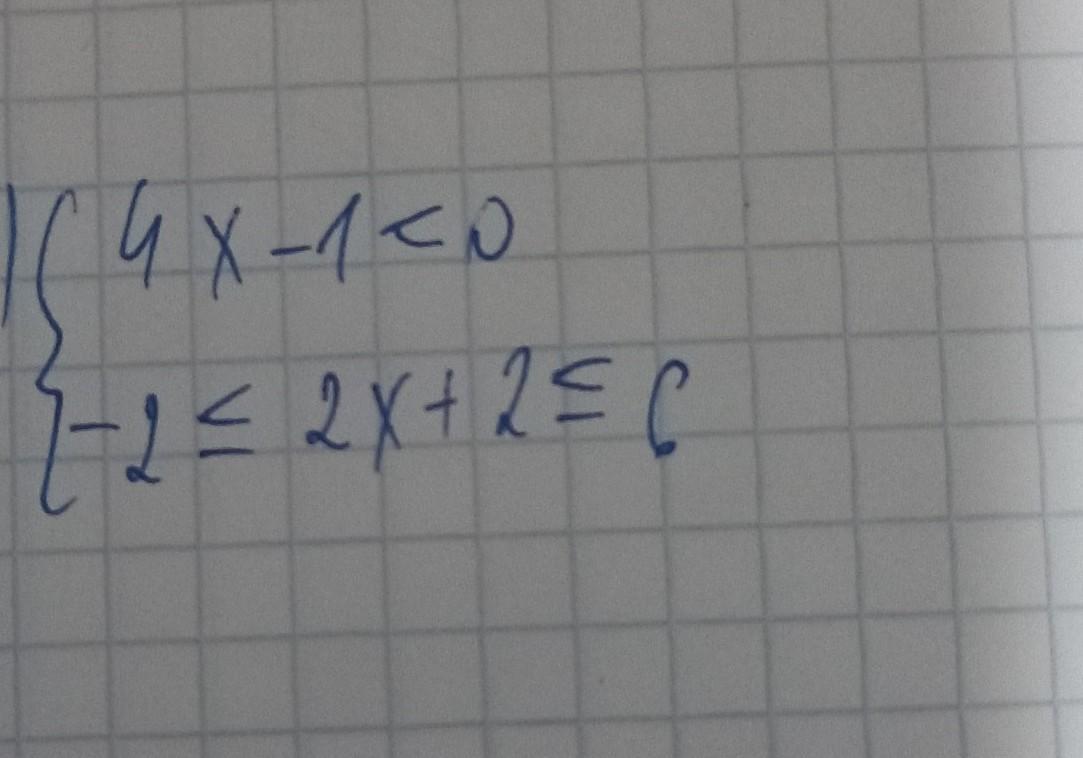 ) { 4x-1<0
-2 ≤ 2x+2 ≤ 6